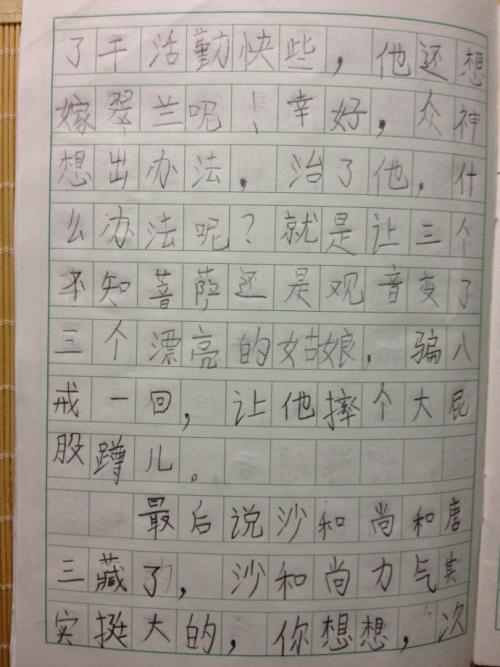 了干活勤快些，他还想
嫁翠兰呢！幸好，众神
想出办法，治了他，什
么办法呢？就是让三个
不知菩萨还是观音变了
三个漂亮的姑娘，骗八
戒一回，让他摔个大屁
股蹲儿。
最后说沙和尚和唐
三藏了，沙和尚力气其
实挺大的，你想想，次